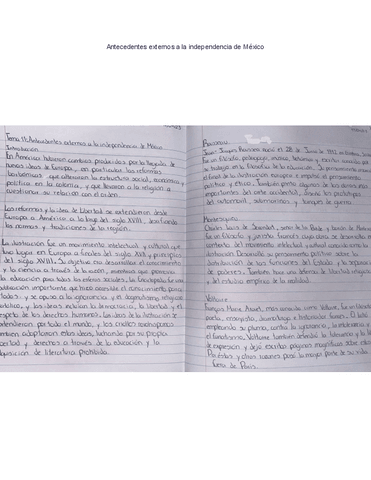 Antecedentes externos a la independencia de México
Tema 11: Antecedentes externos a la independencia de México
Introducción
En América hubieron cambios producidos por la llegada de
nuevas ideas de Europa, en particular las reformas
borbónicas que alteraron la estructura social, economía y
política en la colonia, y que llevaron a la religión a
cuestionar su relación con el orden.
Las reformas y la idea de libertad se extendieron desde
Europa a América a lo largo del siglo XVIII, desafiando
las normas y tradiciones de la región.
La ilustración fue un movimiento intelectual y cultural que
tuvo lugar en Europa a finales del siglo XVII y principios
del siglo XVIII. Su objetivo era desarrollar el conocimiento
y la ciencia a través de la razón, mientras que promovía
la educación y las libertades sociales. La Enciclopedia fue una
publicación importante que hizo accesible el conocimiento para
todos y se opuso a la ignorancia y el dogmatismo, religioso
político, y las ideas incluían la democracia, la libertad y el
respeto de los derechos humanos. Las ideas de la ilustración se
extendieron por todo el mundo, y los criollos novohispanos
también adoptaron estas ideas, luchando por su propia
libertad y derechos a través de la educación y la
adquisición de literatura prohibida.
Rousseau
Jean-Jacques Rousseau nació el 28 de Junio de 1712, en
Fue un filósofo, pedagogo, músico, botánico y escritor conocido por
su trabajo en la filosofía de la educación. Se presentó en el
nivel de la ilustración europea e impulsó el pensamiento
político y ético. También
importantes del arte occidental,
del automóvil, submarinos y tanques de guerra.
Montesquieu
Charles Louis de Secondat, señor de la Brède y barón de Montesquieu
fue un filósofo y jurista francés cuya obra se desarrolla en el
contexto del movimiento intelectual y cultural conocido como la
ilustración. Desarrolló su pensamiento político sobre la
distribución de las funciones del Estado y la separación
de poderes. También hace una defensa de la libertad religiosa
y del estudio empírico de la realidad.
Voltaire
François Marie Arouet, más conocido como Voltaire, fue un filósofo,
poeta, ensayista, dramaturgo e historiador francés. Él luchó
empleando su pluma, contra la ignorancia, la intolerancia y
el fanatismo. Voltaire también defendió la tolerancia y la libertad
de expresión y dejó escritas páginas magníficas sobre estos
Por estas y otras razones pasó la mayor parte de su vida
fuera de París.